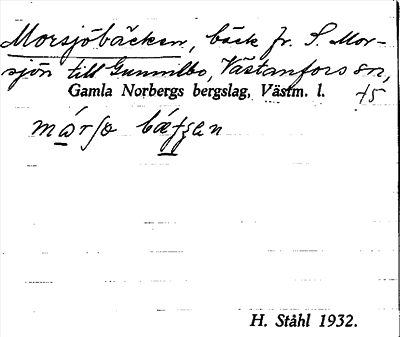 Morsjöbäcken, bäck fr. S. Mor-
sjön till Gunnilbo, Västanfors sn,
Gamla Norbergs bergslag, Västm. l. +5
H. Ståhl 1932.